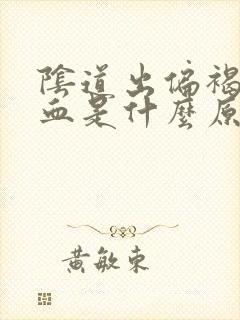 陰道出偏褐
血是什麼原
黃敏東